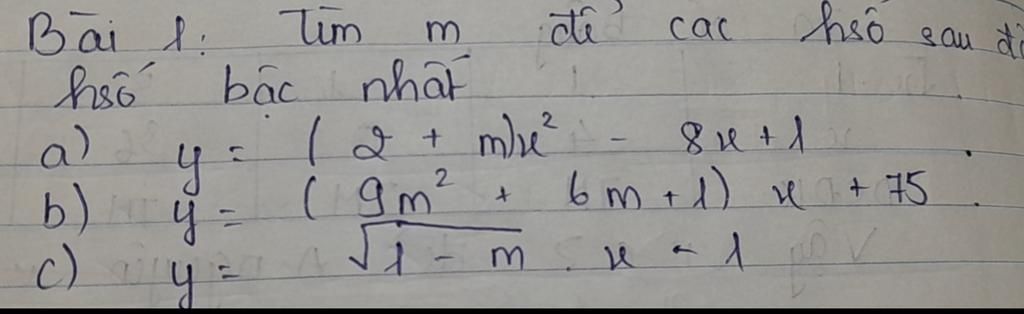 Bài 1: Tìm m để các hsố sau
hsố bậc nhất
a) y = (2 + m)x² - 8x + 1
b) y = (9m² + 6m + 1) x + 75
c) y = √(1 - m) . x - 1